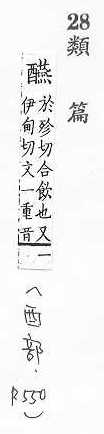 28類篇
醼於珍切合飲也又一
伊甸切文一重音一
(酉部.
P.550)